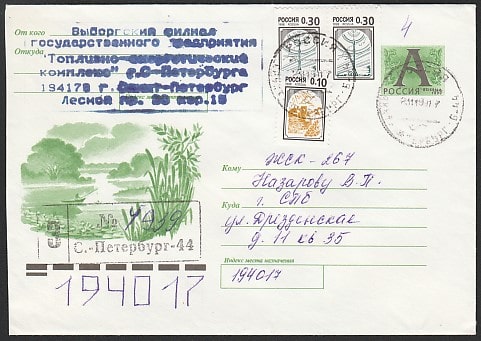 От кого
Откуда
Выборгский филиал
государственного предприятия
"Топливно-энергетический
комплекс" г.С-Петербурга
194178 г. Санкт-Петербург
Лесной пр.
РОССИЯ 0.30
РОССИЯ 0.30
РОССИЯ 0.10
4
А
РОССИЯ
Кому ЖСК-267
Назарову В.П.
Куда г. СПб
ул. Дрезденская
д. 11 кв 35
Индекс места назначения
194017
З
№
С.-Петербург-44
194017